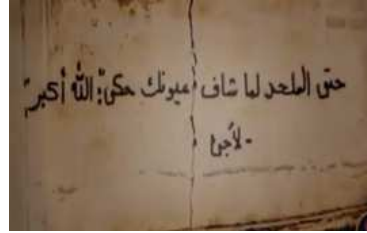 حتى الملحد لما شاف عيونك حكى: الله أكبر
- لأجئ